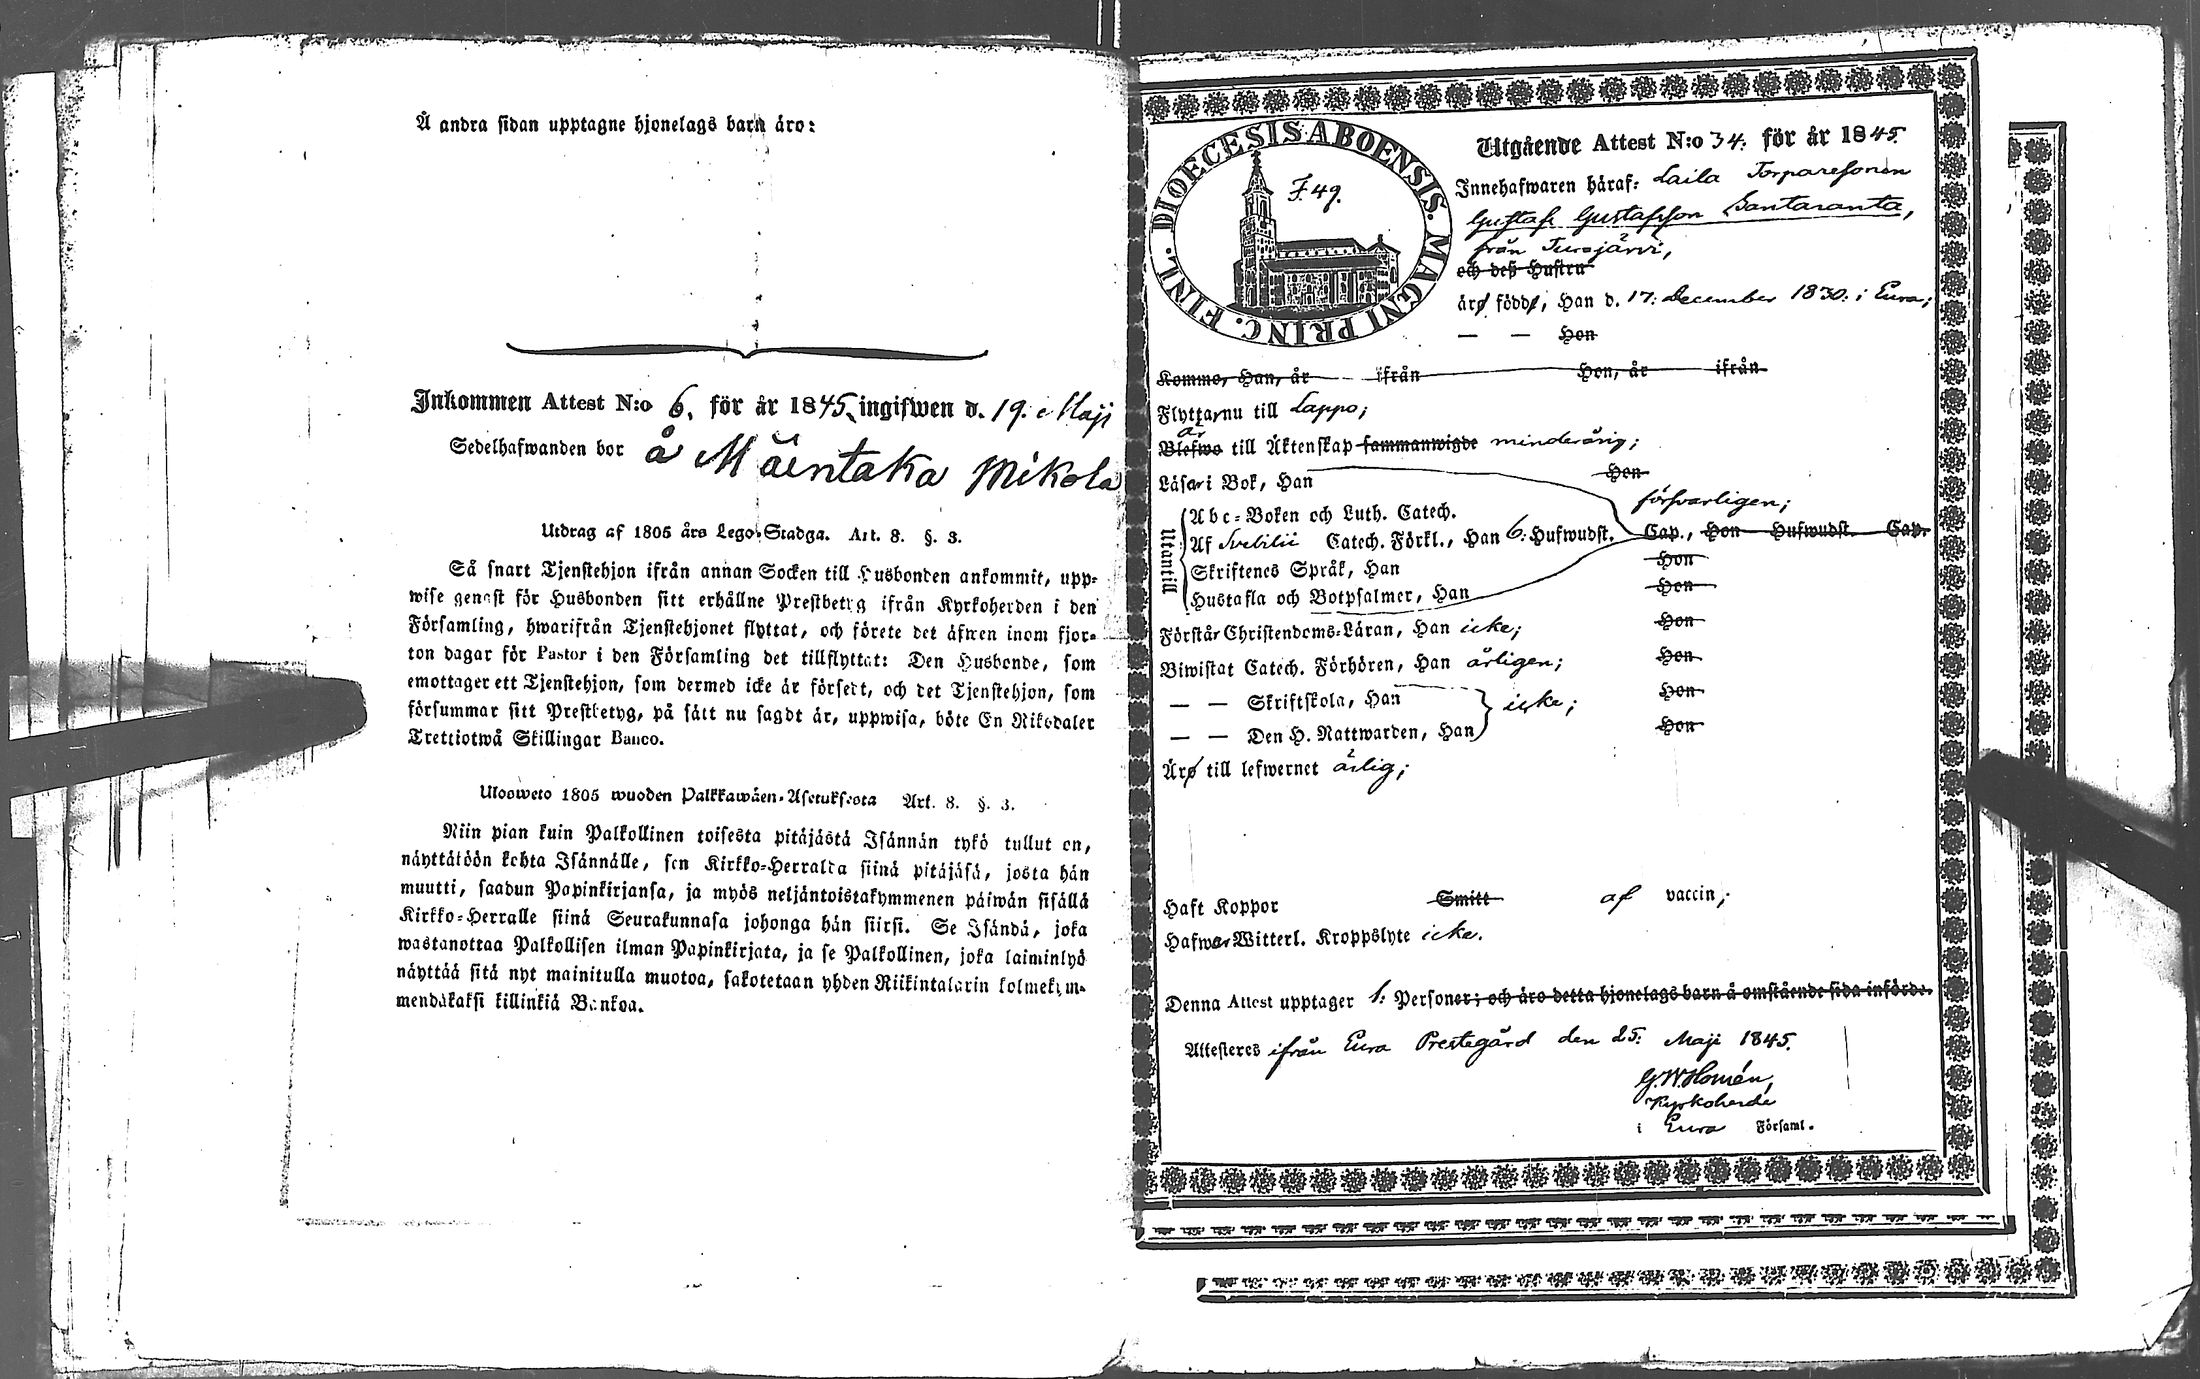 Å andra sidan upptagne hjonelags barn äro:
Inkommen Attest N:o 6. för år 1845, ingifwen d. 19. Maji
Sedelhafwanden bor å Mäentaka Mikola
Utdrag af 1805 års Lego-Stadga. Art. 8. §. 3.
Så snart Tjenstehjon ifrån annan Socken till Husbonden ankommit, upp-
wise genast för Husbonden sitt erhållne Prestbetyg ifrån Kyrkoherden i den
Församling, hwarifrån Tjenstehjonet flyttat, och förete det äfwen inom fjor-
ton dagar för Pastor i den Församling det tillflyttat: Den Husbonde, som
emottager ett Tjenstehjon, som dermed icke är försedt, och det Tjenstehjon, som
försummar sitt Prestbetyg, på sätt nu sagdt är, uppwisa, böte En Riksdaler
Trettiotwå Skillingar Banco.
Ulosweto 1805 wuoden Palkkawäen-Asetuksesta Art. 8. §. 3.
Niin pian kuin Palkollinen toisesta pitäjästä Isännän tykö tullut on,
näyttäköön kohta Isännälle, sen Kirkko-Herralda siinä pitäjäsä, josta hän
muutti, saadun Papinkirjansa, ja myös neljäntoistakymmenen päiwän sisällä
Kirkko-Herralle siinä Seurakunnasa johonga hän siirsi. Se Isändä, joka
wastanottaa Palkollisen ilman Papinkirjata, ja se Palkollinen, joka laiminlyö
näyttää sitä nyt mainitulla muotoa, sakotetaan yhden Riikintalarin kolmekym-
mendäkaksi killinkiä Bankoa.
DIOECESIS ABOENSIS. MAGNI PRINC. FINL.
F. 49.
Utgående Attest N:o 34. för år 1845.
Innehafwaren häraf: Laila Torparesonen
Gustaf Gustafsson Santaranta,
från Turajärvi,
och dess Hustru
äro födde, Han d. 17: December 1830: i Eura;
— — Hon
Komne, Han, år ifrån Hon, år ifrån
Flytta nu till Lappo;
är
Blefwo till Äktenskap sammanwigde minderårig;
Läsa i Bok, Han Hon
försvarligen;
Utantill
Abc-Boken och Luth. Catech.
Af Svebilii Catech. Förkl., Han 6: Hufwudst. Cap., Hon Hufwudst. Cap.
Skriftenes Språk, Han Hon
Hustafla och Botpsalmer, Han Hon
Förstår Christendoms-Läran, Han icke; Hon
Biwistat Catech. Förhören, Han årligen; Hon
— — Skriftskola, Han Hon
icke;
— — Den H. Nattwarden, Han Hon
Äro till lefwernet ärlig;
Haft Koppor Smitt af vaccin;
Hafwer Witterl. Kroppslyte icke.
Denna Attest upptager 1: Personer; och äro detta hjonelags barn å omstående sida införde.
Attesteres ifrån Eura Prestegård den 25: Maji 1845.
G. W. Homén,
Kyrkoherde
i Eura Församl.